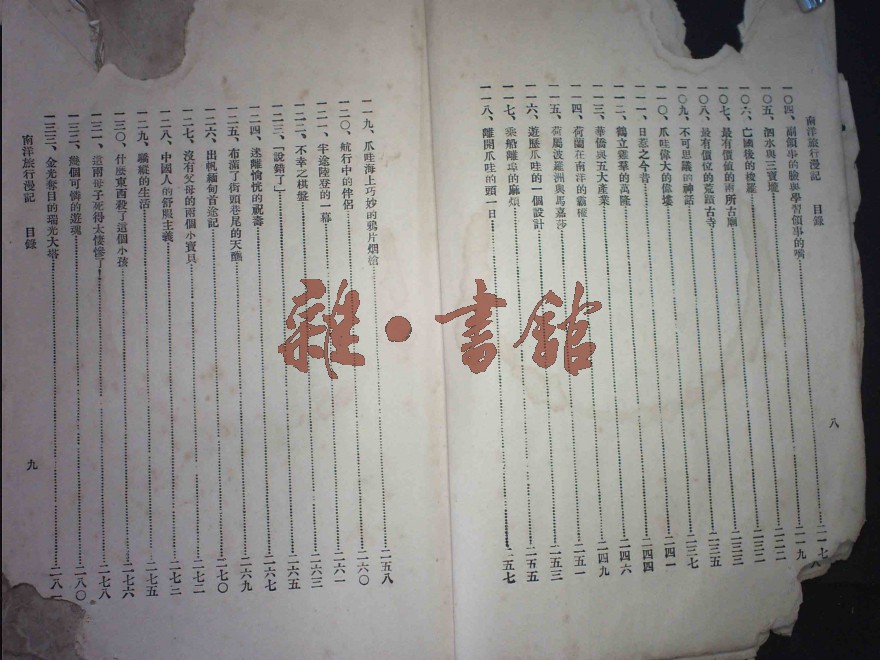 南洋旅行漫記 目錄 八
一〇四、副領事的臉與學習領事的嘴……二一七
一〇五、泗水與三寶壠……二一九
一〇六、亡國後的梭羅……二二二
一〇七、最有價值的兩所古廟……二三三
一〇八、最有價位的荒蹟古寺……二三五
一〇九、不可思議的神話……二三七
一一〇、爪哇偉大的偉墳……二四一
一一一、日惹之今昔……二四四
一一二、鶴立雞羣的萬隆……二四六
一一三、華僑與五大產業……二四九
一一四、荷蘭在南洋的霸權……二五一
一一五、荷屬波羅洲與馬嘉莎……二五三
一一六、遊歷爪哇的一個設計……二五五
一一七、乘船離埠的麻煩……二五七
一一八、離開爪哇的頭一日……
一一九、爪哇海上巧妙的鴉片烟槍……二五八
一二〇、航行中的伴侶……二六〇
一二一、半途陸登的一幕……二六一
一二二、不幸之棋盤……二六三
一二三、「說錯了」……二六五
一二四、迷離愉恍的祝壽……二六七
一二五、布滿了街頭巷尾的天醮……二六九
一二六、出帆緬甸首途記……二七〇
一二七、沒有父母的兩個小寶貝……二七二
一二八、中國人的舒服主義……二七二
一二九、驕縱的生活……二七五
一三〇、什麼東西殺了這個小孩……二七六
一三一、這兩母子死得太悽慘了……二七八
一三二、幾個可憐的遊魂……二八〇
一三三、金光奪目的瑞光大塔……二八
南洋旅行漫記 目錄 九
雜·書館